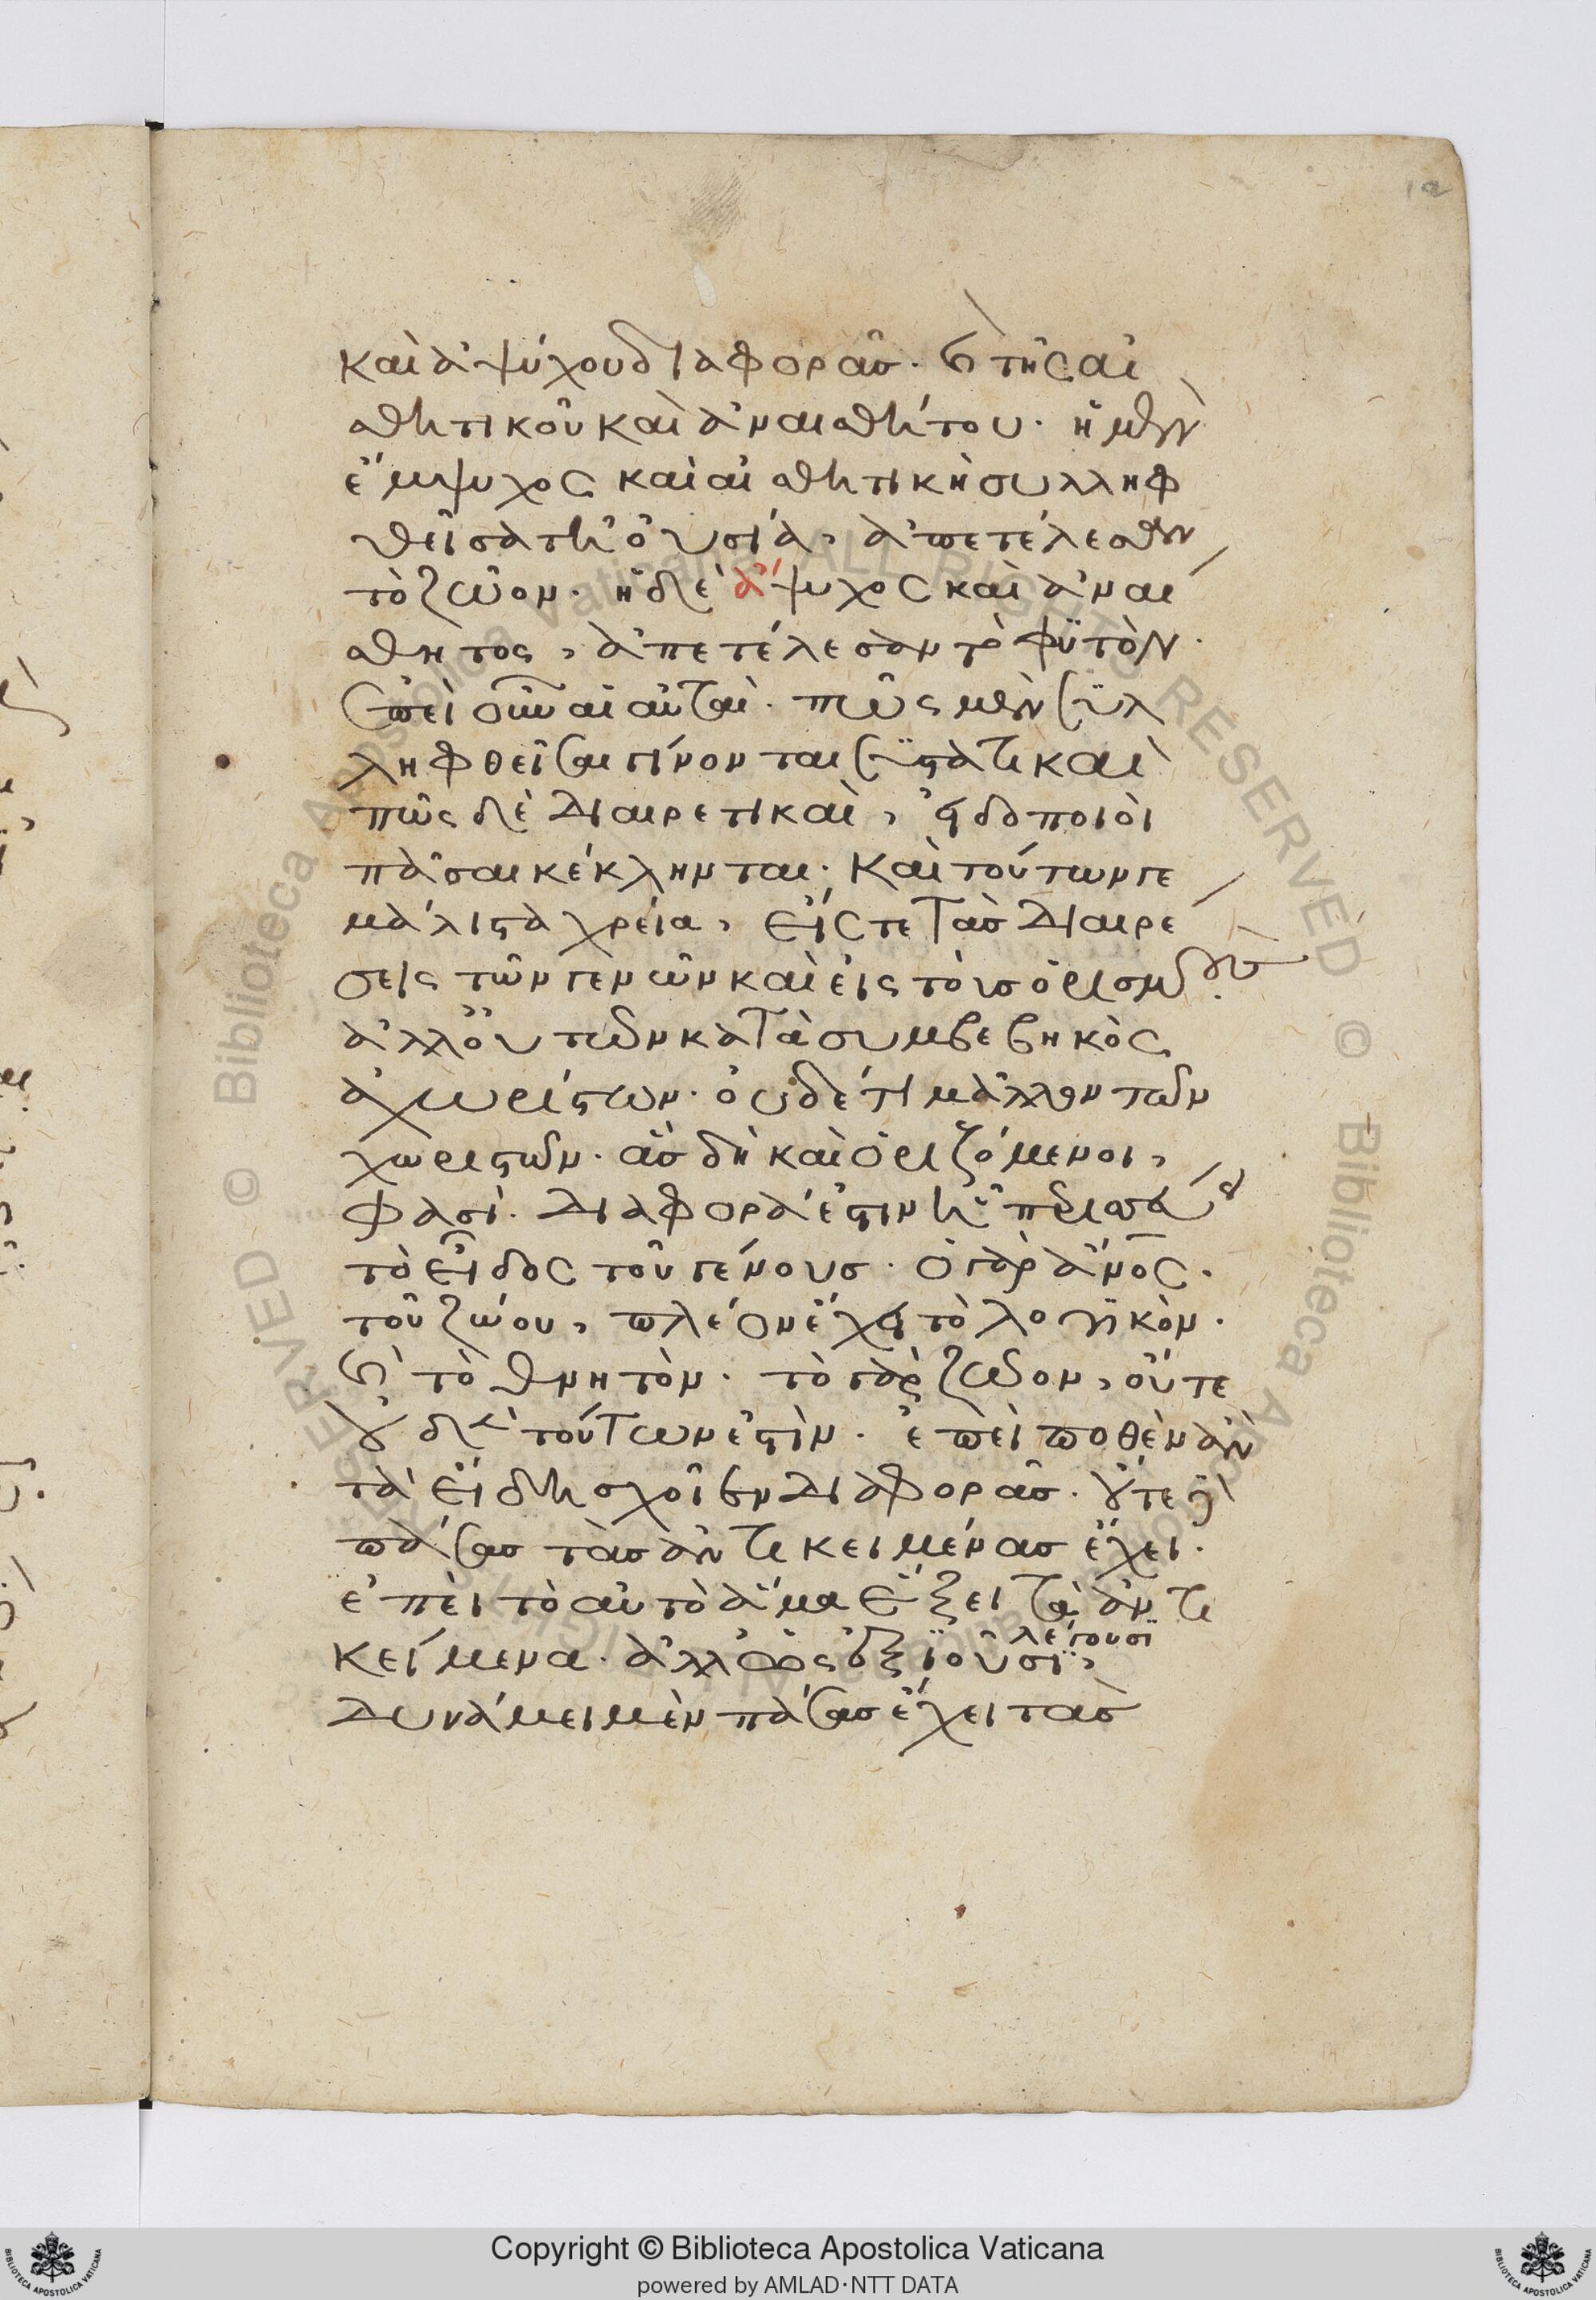 καὶ ἀψύχου διαφορᾶς. καὶ τῆς αἰ
σθητικοῦ καὶ ἀναισθήτου. ἡ μὲν
ἔμψυχος καὶ αἰσθητικὴ συλληφ
θεῖσα τῆ οὐσία, ἀπετέλεσεν
τὸ ζῶον. ἡ δὲ ἄψυχος καὶ ἀναί
σθητος, ἀπετέλεσαν τὸ φϋτὸν.
ἐπεὶ οὖν αἱ αὐταὶ. πῶς μὲν συλ
ληφθεῖσαι γίνονται συστατικαὶ
πῶς δὲ διαιρετικαὶ, εἰδοποιοὶ
πᾶσαι κέκληνται. καὶ τούτων γε
μάλιστα χρεία, εἴς τε τὰς διαιρέ
σεις τῶν γενῶν καὶ εἰς τοὺς ὁρισμούς.
ἀλλ' οὐ τῶν κατὰ συμβεβηκὸς
ἀχωρίστων. οὐδέ τι μᾶλλον τῶν
χωριστῶν. ἃς δὴ καὶ ὁριζόμενοι,
φασὶ. διαφορά ἐστιν ἡ περισσεύει
τὸ εἶδος τοῦ γένους. ὁ γὰρ ἄνος.
τοῦ ζώου, πλέον ἔχει τὸ λογικὸν.
καὶ τὸ θνητὸν. τὸ γὰρ ζῶον, οὔτε
οὐδὲν τούτων ἐστὶν. ἐπεὶ ποθὲν ἂν
τὰ εἴδη σχοῖεν διαφορᾶς. οὔτε δὲ
πάσας τὰς ἀντικειμένας ἔχει.
ἐπεὶ τὸ αὐτὸ ἅμα ἕξει τὰ ἀντι
κείμενα. ἀλλ' ὡς ἀξϊοῦσϊ, λέγουσϊ
δυνάμει μὲν πάσας ἔχει τὰς
Copyright © Biblioteca Apostolica Vaticana
powered by AMLAD·NTT DATA